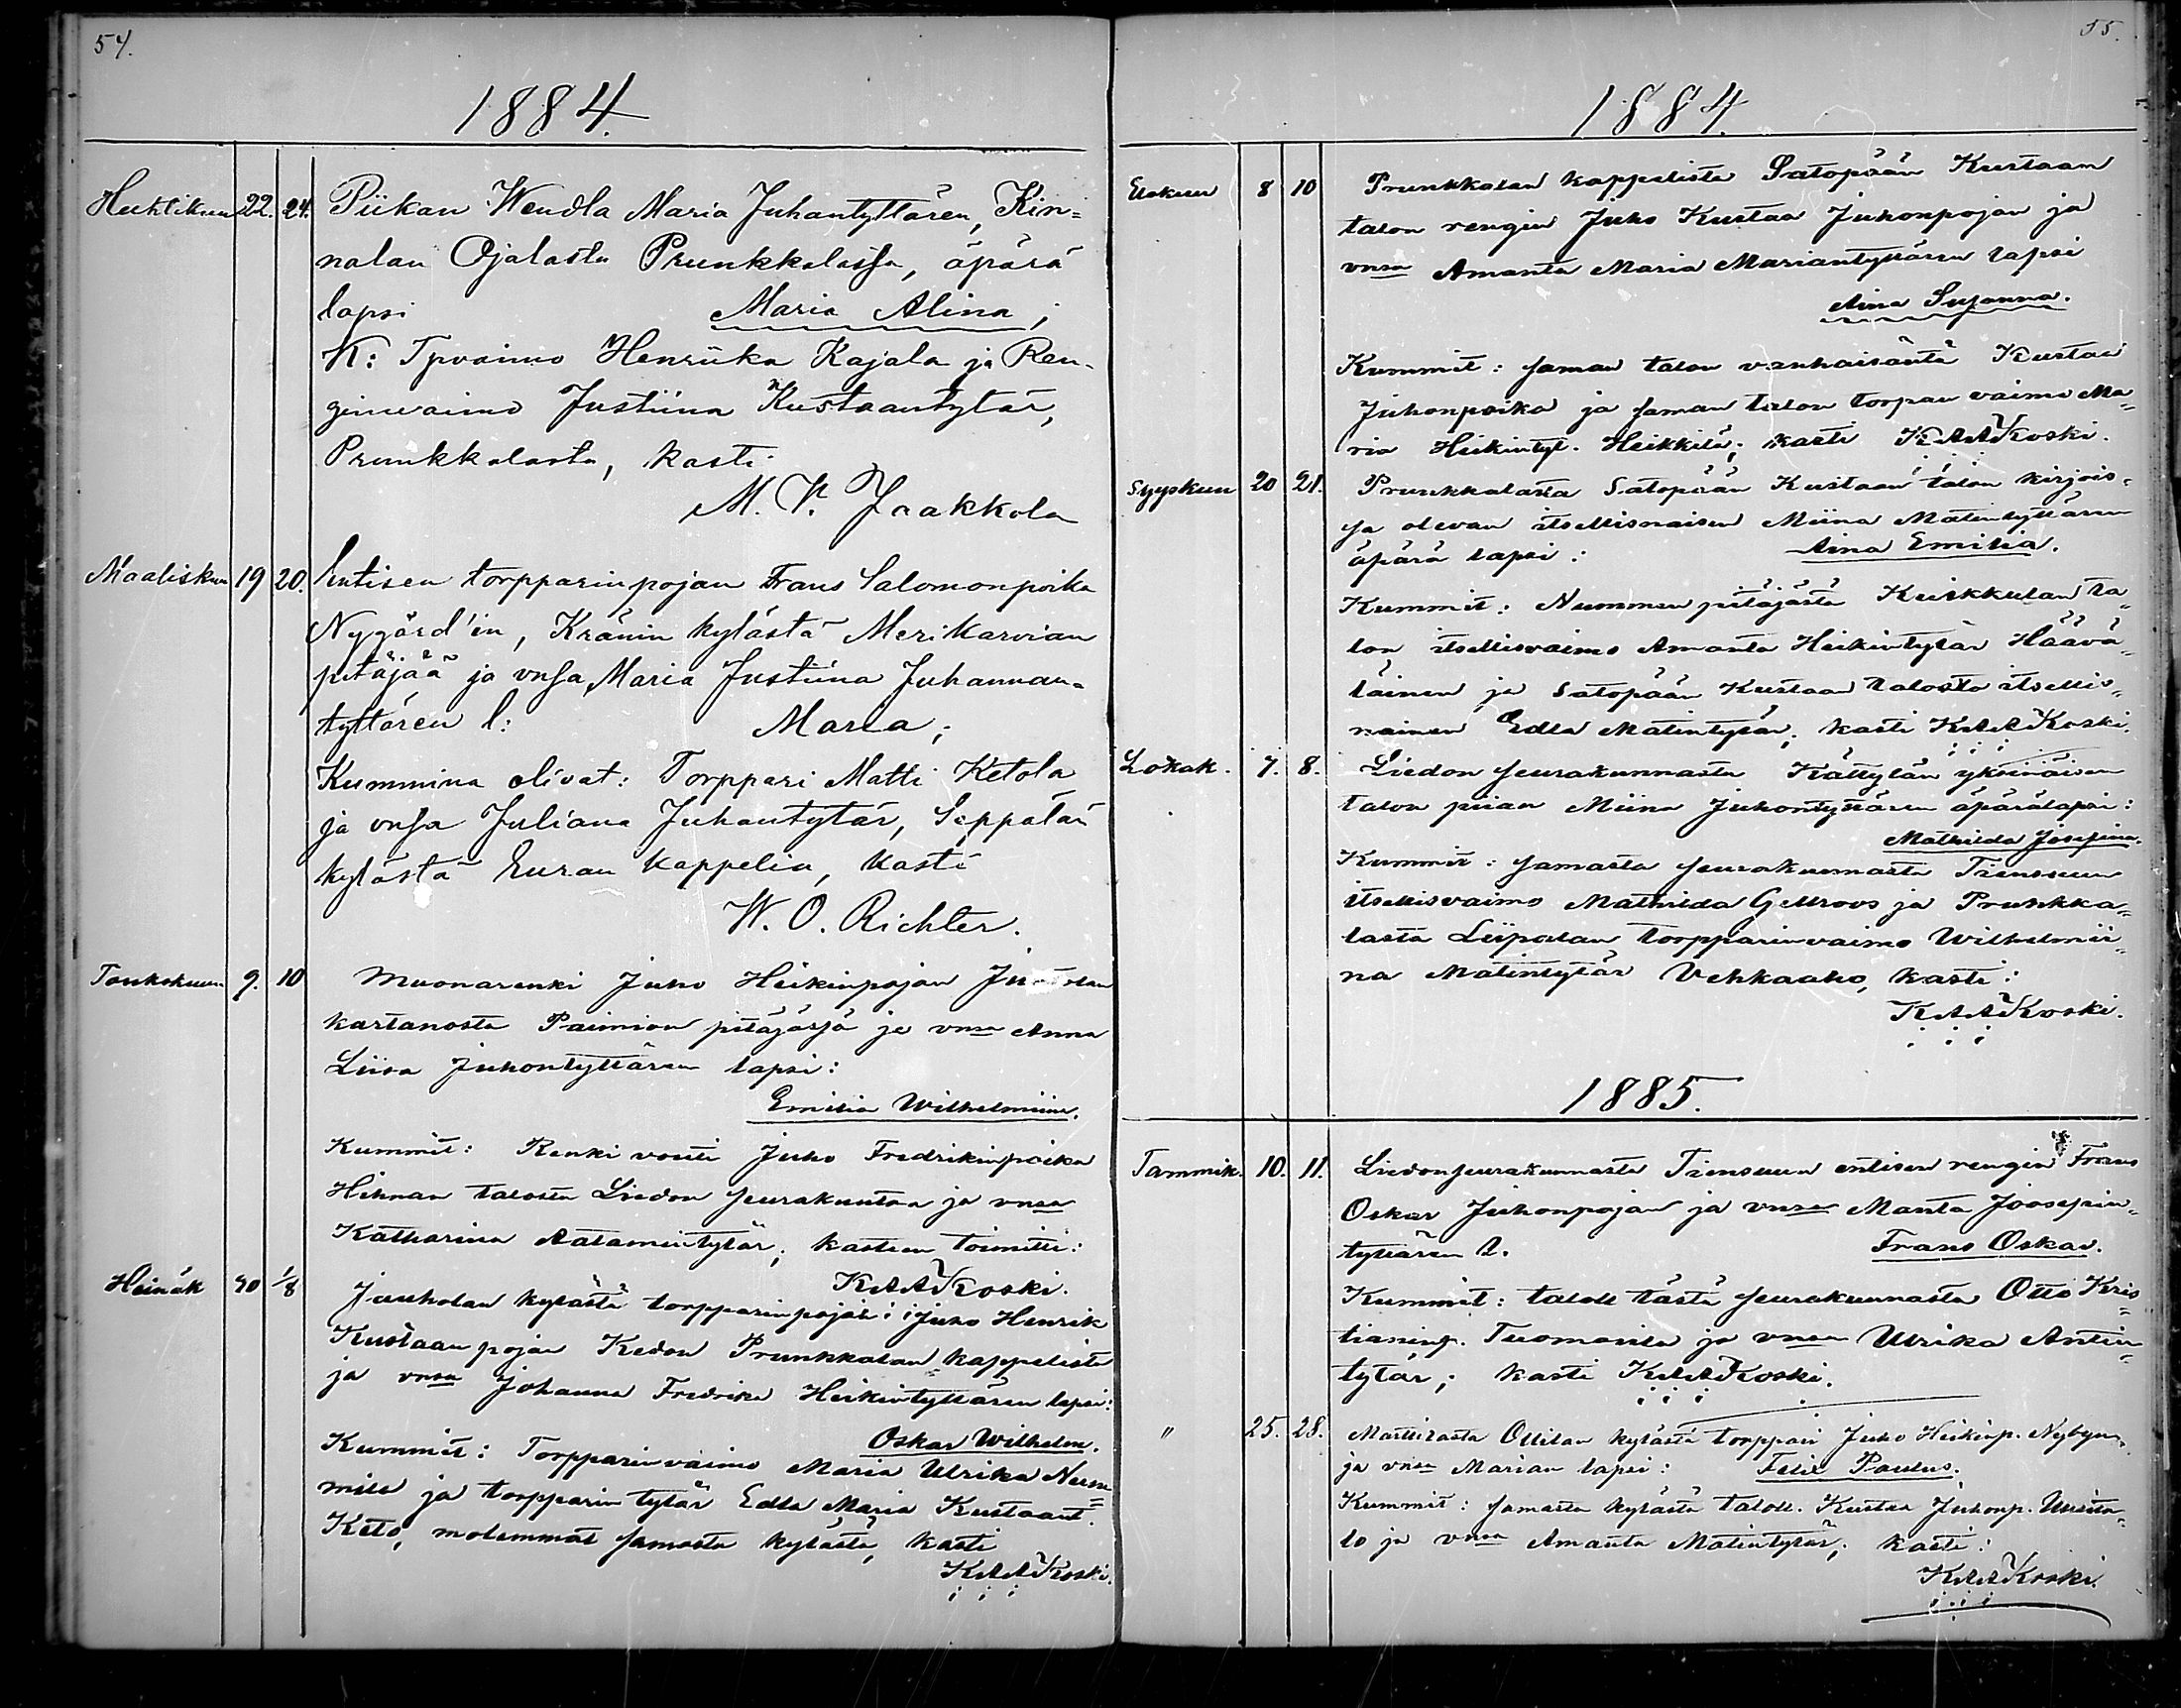 54.
1884.
Huhtikuu 22. 24. Piikan Wendla Maria Juhantyttären, Kin-
nalan Ojalasta Prunkkalassa, äpärä
lapsi Maria Alina;
K: Tpvaimo Henriika Kajala ja Ren-
ginwaimo Justiina Kustaantytär,
Prunkkalasta, kasti
M. V. Jaakkola
Maaliskuu 19 20. Entisen torpparinpojan Frans Salomonpoika
Nygård'in, Kränin kylästä Merikarvian
pitäjää ja vnsa, Maria Justiina Juhannan-
tyttären l: Maria;
Kummina olivat: Torppari Matti Ketola
ja vnsa Juliana Juhantytär, Seppälän
kylästä Euran Kappelia, kasti
W. O. Richter.
Toukokuun 9. 10 Muonarenki Juho Heikinpojan
kartanosta Paimion pitäjässä ja vnsa Anna
Liisa Juhontyttären lapsi:
Emilia Wilhelmiina.
Kummit: Renki vouti Juho Fredrikinpoika
Hihnan talosta Liedon seurakuntaa ja vnsa
Katharina Aatamintytär; kasteen toimitti:
KAAKoski.
Heinäk 30 1/8 Jauholan kylästä torpparinpojan Juho Henrik
Kustaanpojan Kedon Prunkkalan kappelista
ja vnsa Johanna Fredrika Heikintyttären lapsi:
Oskar Wilhelm.
Kummit: Torpparinvaimo Maria Ulrika Num-
mila ja torpparin tytär Edla Maria Kustaant.
Keto, molemmat samasta kylästä, kasti
KAAKoski.
55.
1884.
Elokuu 8 10 Prunkkalan kappelista Satopään Kustaan
talon rengin Juho Kustaa Juhonpojan ja
vnsa Amanta Maria Mariantyttären lapsi
Aina Susanna.
Kummit: saman talon vanhaisäntä Kustaa
Juhonpoika ja saman talon torpan vaimo Ma-
ria Heikintyt. Heikkilä; kasti KAAKoski.
Syyskuu 20 21. Prunkkalasta Satopään Kustaan talon kirjois-
sa olevan itsellisnaisen Miina Matintyttären
äpärä lapsi: Aina Emilia.
Kummit: Nummen pitäjästä Keikkulan ta-
lon itsellisvaimo Amanta Heikintytär Häävä-
läinen ja Satopään Kustaan talosta itsellis-
nainen Edla Matintytär; kasti KAAKoski.
Lokak. 7. 8. Liedon seurakunnasta Kättylän yksinäisen
talon piian Miina Juhontyttären äpärälapsi:
Mathilda Josefina.
Kummit: samasta seurakunnasta Tiensuun
itsellisvaimo Mathilda Gellroos ja Prunkka-
lasta Liipolan torpparinvaimo Wilhelmii-
na Matintytär Vehkaaho, kasti:
KAAKoski.
1885.
Tammik. 10. 11. Liedonseurakunnasta Tiensuun entisen rengin Frans
Oskar Juhonpojan ja vnsa Manta Joosepin-
tyttären l. Frans Oskar.
Kummit: taloll tästä seurakunnasta Otto Kris-
tianinp. Tuomarila ja vnsa Ulrika Antin-
tytär; kasti KAAKoski.
" 25. 28. Marttilasta Ollilan kylästä torppari Juho Heikinp. Nybyn
ja vnsa Marian lapsi: Felix Paulus.
Kummit: samasta kylästä taloll. Kustaa Juhonp. Uusita-
lo ja vnsa Amanta Matintytär; kasti:
KAAKoski.